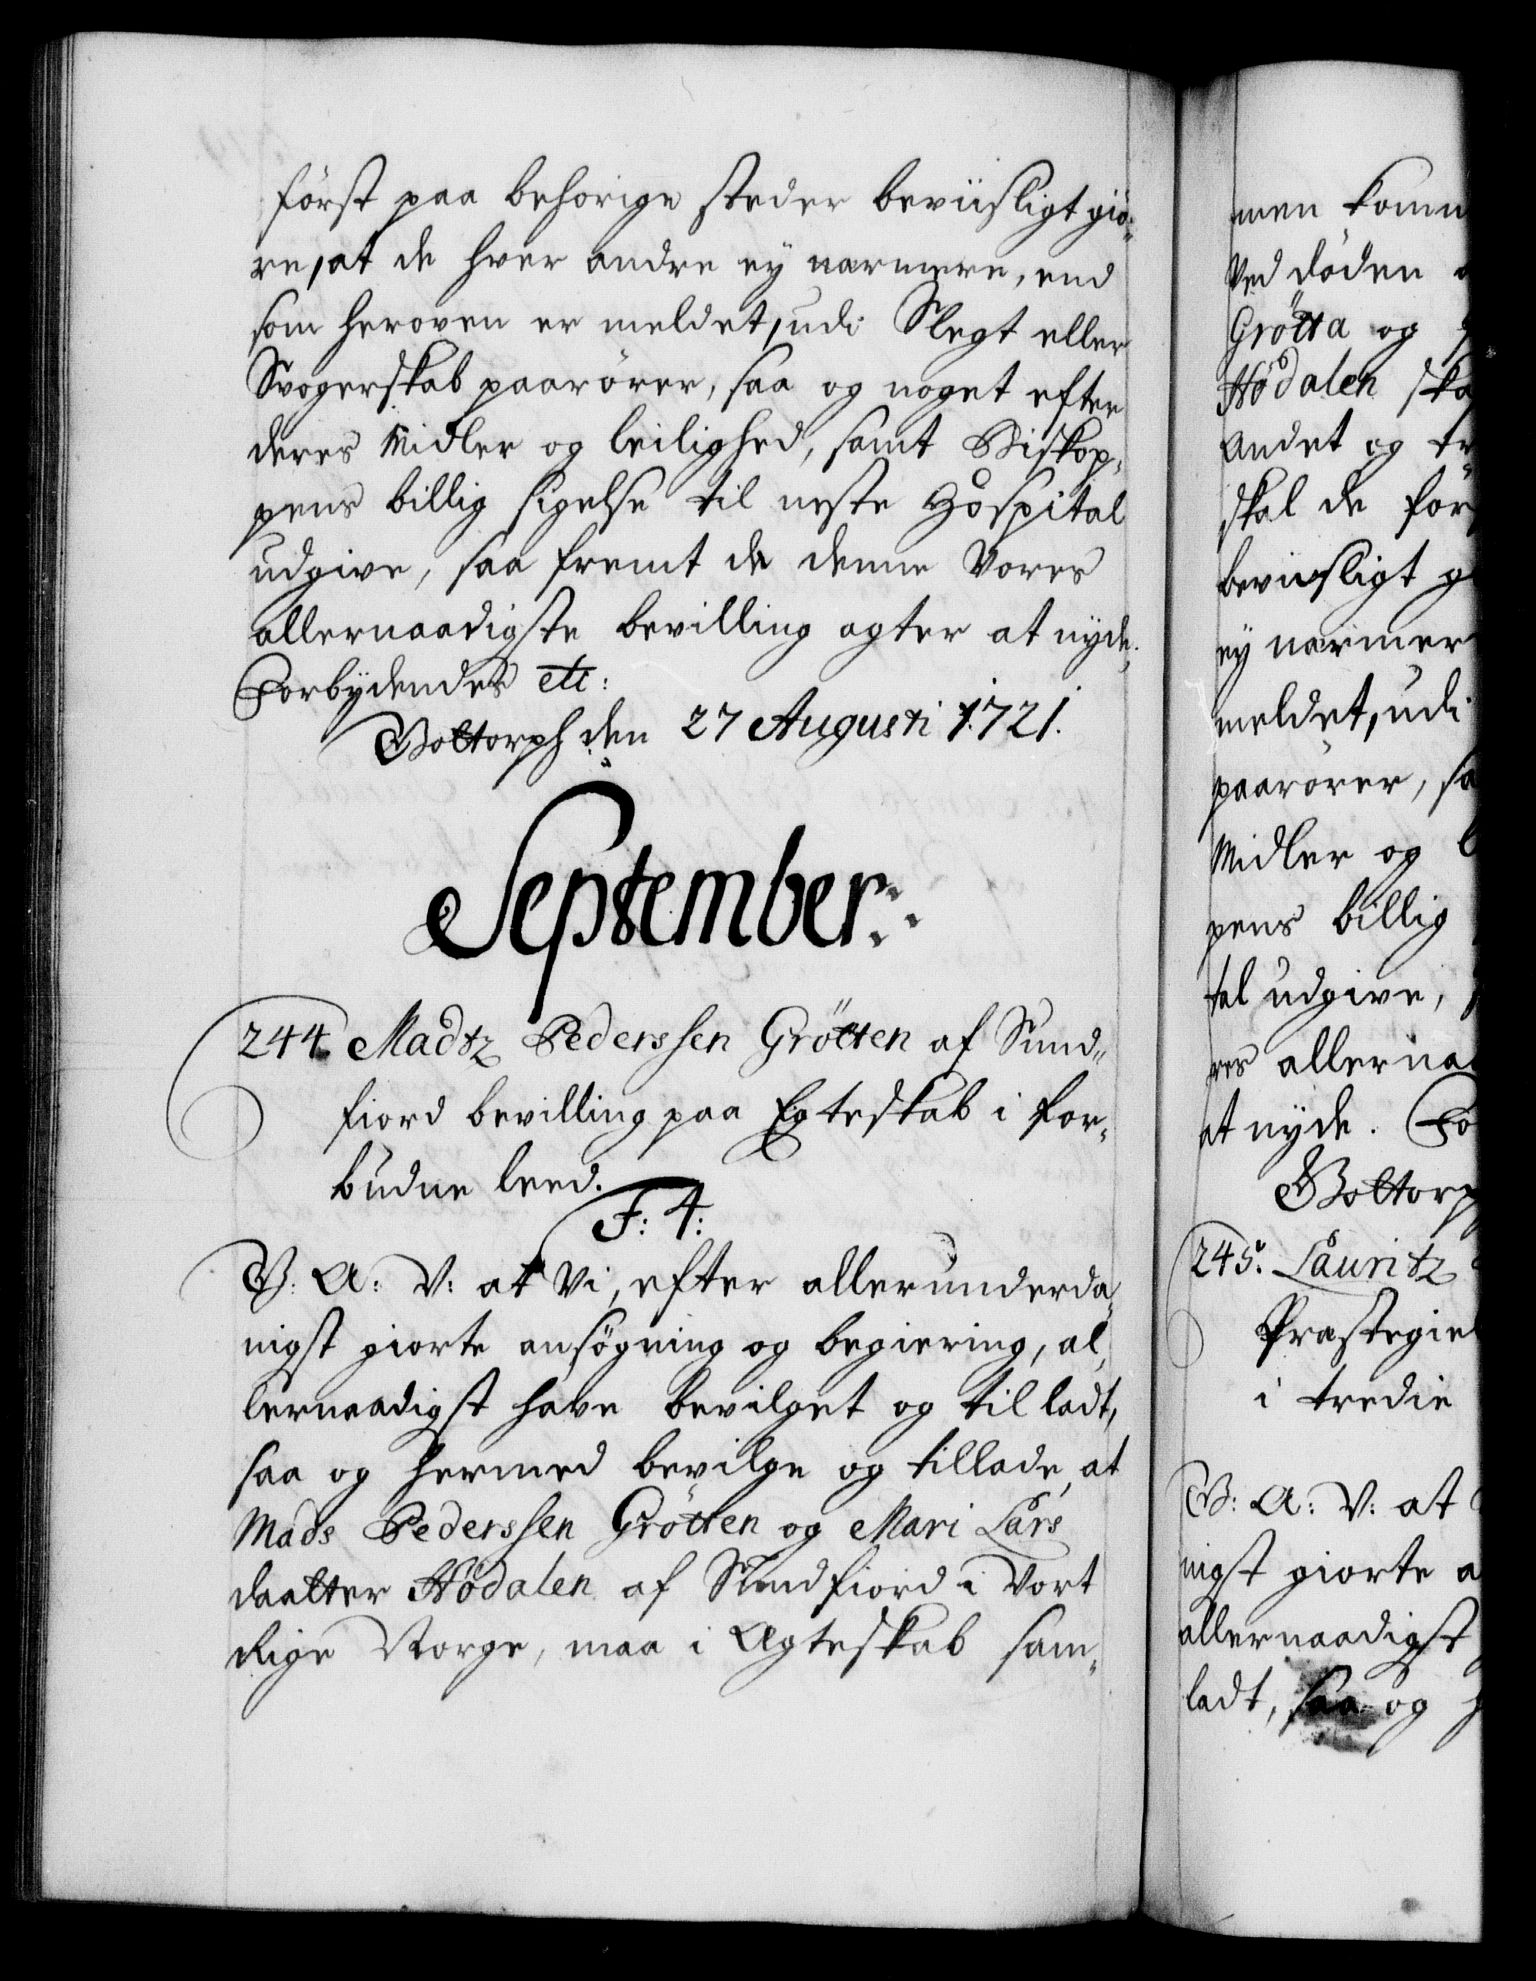 först paa behörige steder beviisligt giö-
re, at de hver andre ey narmere, end
som heroven er meldet, udi Slegt eller
Svogerskab paarörer, saa og noget efter
deres Midler og leilighed, samt Biskop-
pens billig sigelse til neste Hospital
udgive, saa fremt de denne Vores
allernaadigste bevilling agter at nyde.
Forbydendes etc:
Gottorph den 27 Augusti 1721.
September:
244. Madtz Pederssen Grötten af Sund-
fiord bevilling paa Egteskab i for-
budne leed.
F: 4:
V: A: V: at Vi, efter allerunderda-
nigst giorte ansögning og begiering, al-
lernaadigst have bevilget og tilladt,
saa og hermed bevilge og tillade, at
Mads Pederssen Grötten og Mari Lars
daatter Hödalen af Sundfiord i Vort
Rige Norge, maa i Ægteskab sam-
men komm
Ved döden
Grötta og
Hödalen ska
andet og tr
skal de för
beviisligt g
ey narmer
meldet, udi
paarörer, sa
Midler og l
pens billig
tal udgive,
res allernaa
at nyde. Fo
Gottorp
245. Lauritz
Præstegiel
i tredie
V: A: V: at
nigst giorte a
allernaadigst
ladt, saa og h